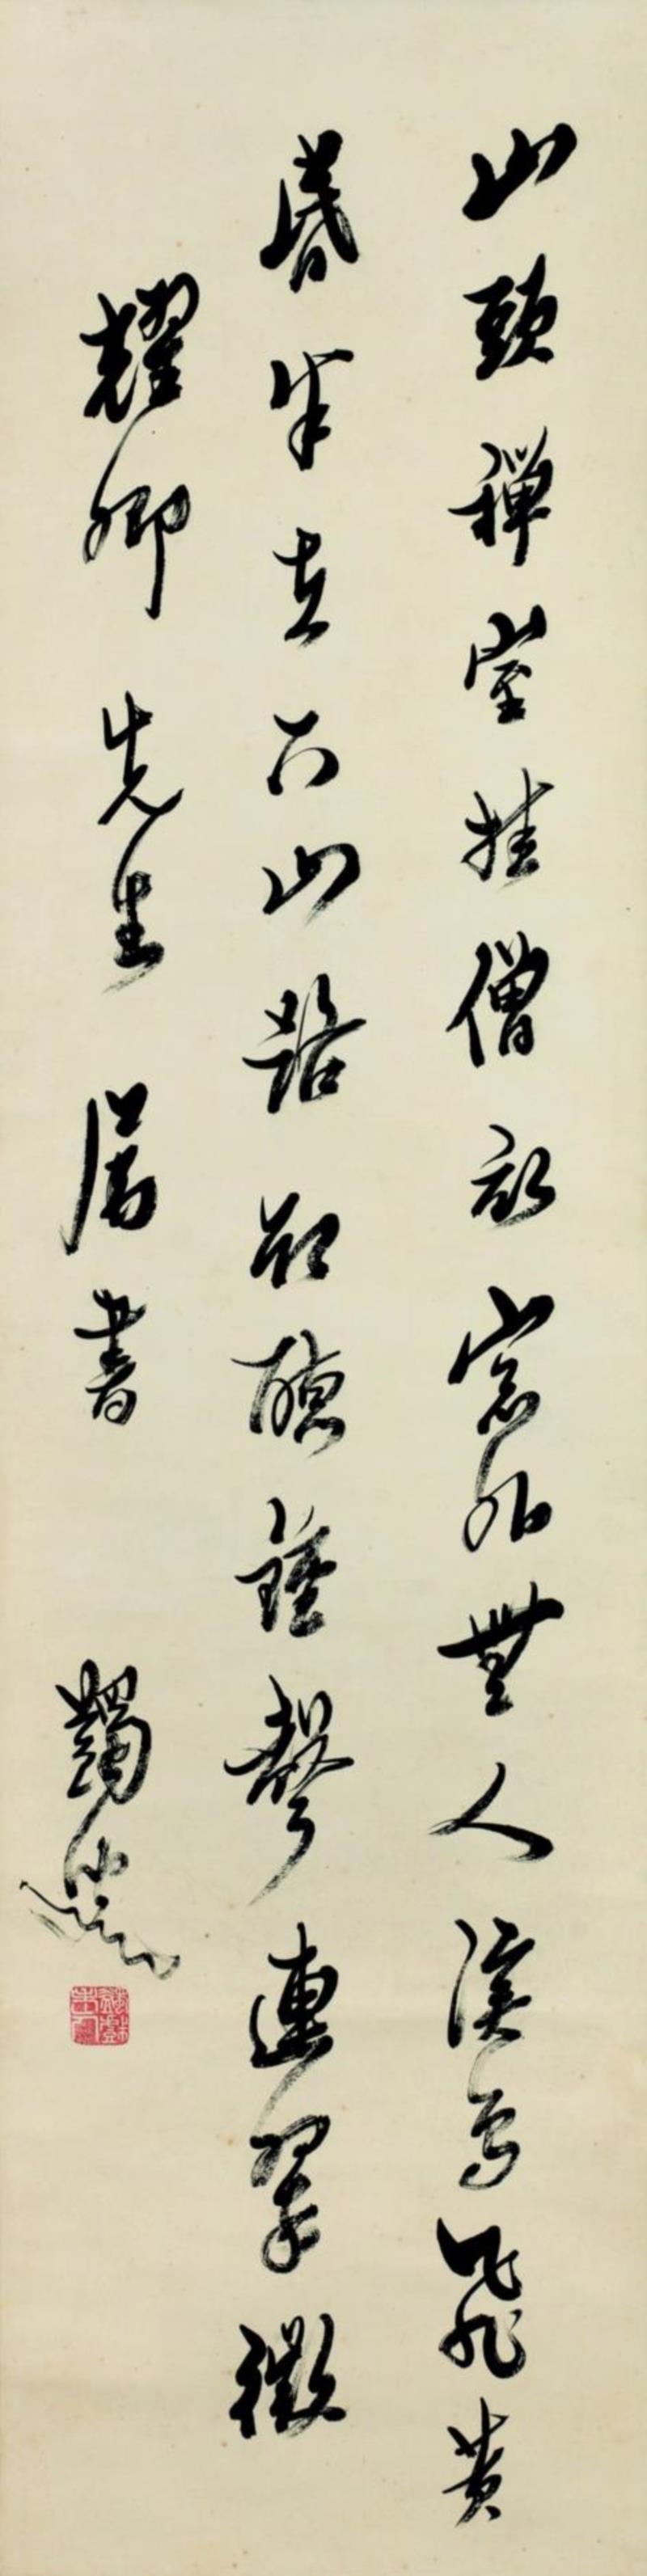 山頭禪室挂僧衣窓外無人溪鳥飛黃
昏半在下山路却聽鐘聲連翠微
耀卿先生屬書 蠲叟